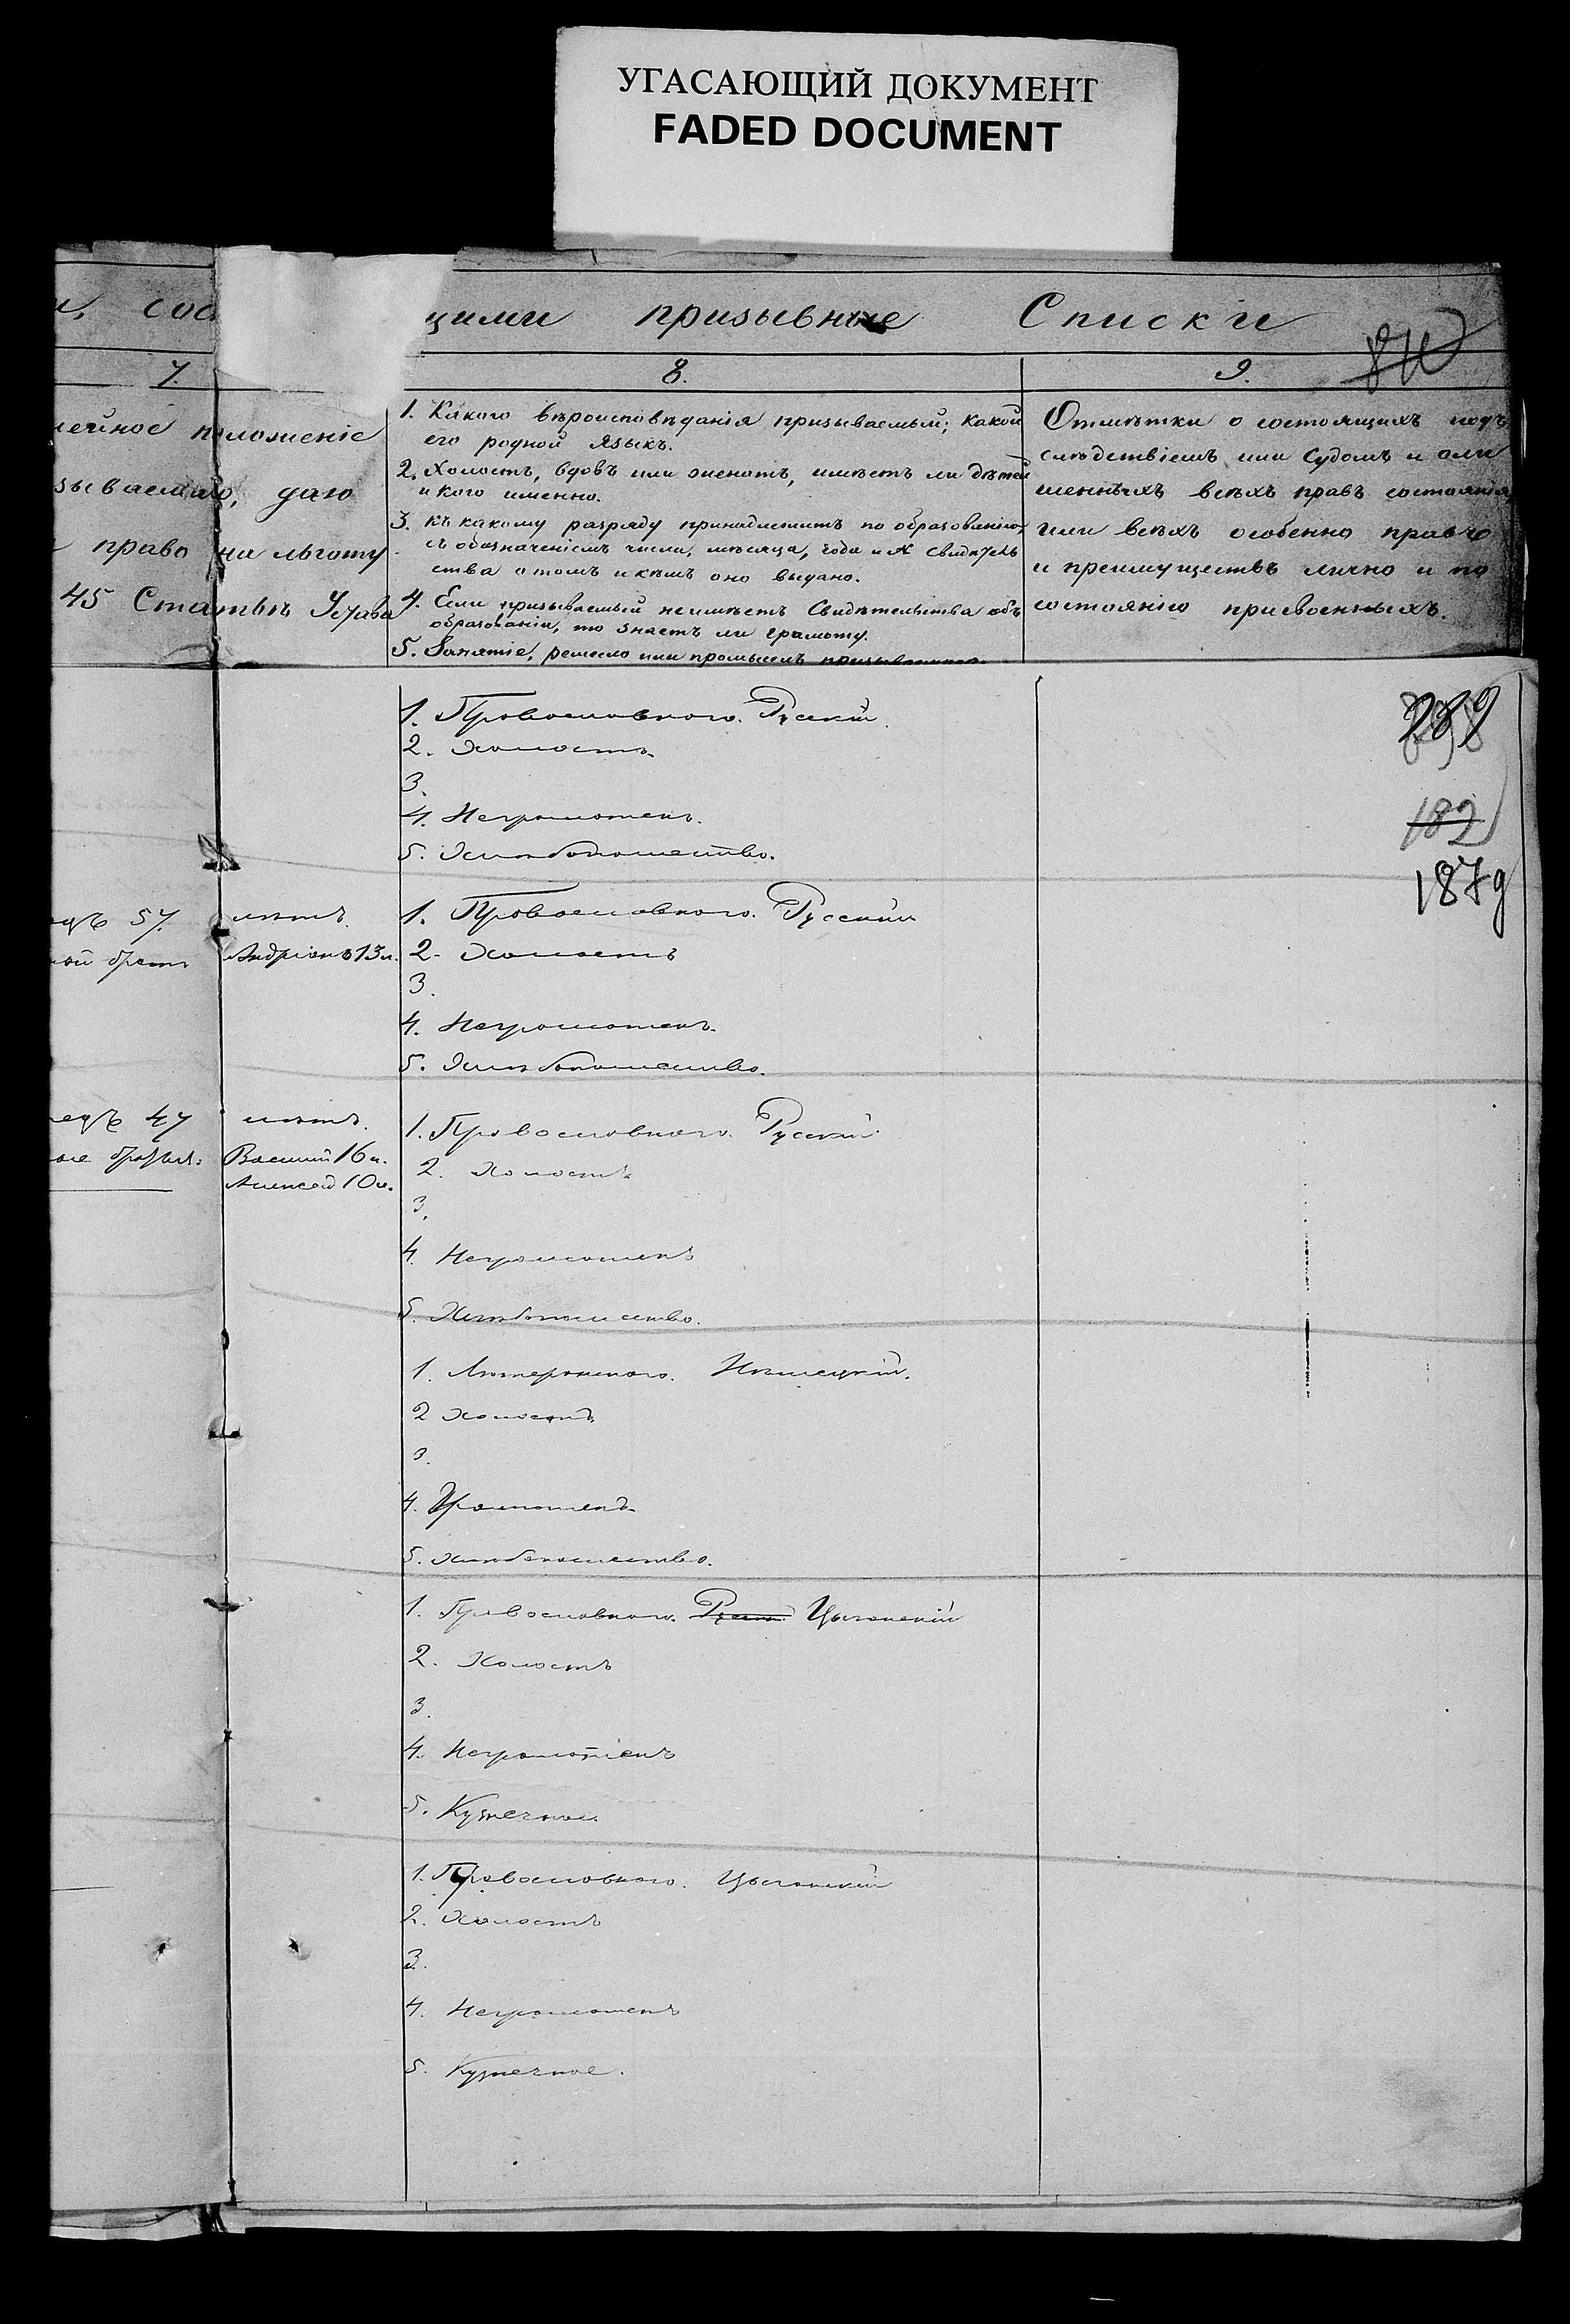 УГАСАЮЩИЙ ДОКУМЕНТ
FADED DOCUMENT
щими призывные Списки
7. 8. 9.
лейное положеніе
зываемаго, даю
право на льготу
45 Статьѣ Устава
1. Какого вѣроисповѣданія призываемый; какой
его родной языкъ.
2. Холостъ, вдовъ или женатъ, имѣетъ ли дѣтей
и кого именно.
3. Къ какому разряду принадлежитъ по образованію,
съ обозначеніемъ числа, мѣсяца, года и № свидѣтель
ства о томъ и кѣмъ оно выдано.
4. Если призываемый неимѣетъ Свидѣтельства объ
образованіи, то знаетъ ли грамоту.
5. Занятіе, ремесло или промыселъ призываемаго.
Отмѣтки о состоящихъ подъ
слѣдствіемъ или Судомъ и али
шенныхъ всѣхъ правъ состоянія,
или всѣхъ особенно правъ
и преимуществъ лично и по
состоянію присвоенныхъ.
289
182
187g
1. Православнаго. Русскій.
2. Холостъ.
3.
4. Неграмотенъ.
5. Хлѣбопашество.
57. лѣтъ.
ной братъ Андріанъ 13 л.
1. Православнаго. Русскій
2. Холостъ
3.
4. Неграмотенъ.
5. Хлѣбопашество.
47 лѣтъ.
Василій 16 л.
Алексѣй 10 л.
1. Православнаго. Русскій.
2. Холостъ
3.
4. Неграмотенъ
5. Хлѣбопашество.
1. Лютеранскаго. Нѣмецкій.
2 Холостъ
3.
4. Грамотенъ
5. Хлѣбопашество.
1. Православнаго. Русскій Цыганскій
2. Холостъ
3.
4. Неграмотенъ
5. Кузнечное.
1. Православнаго. Цыганскій
2. Холостъ
3.
4. Неграмотенъ
5. Кузнечное.